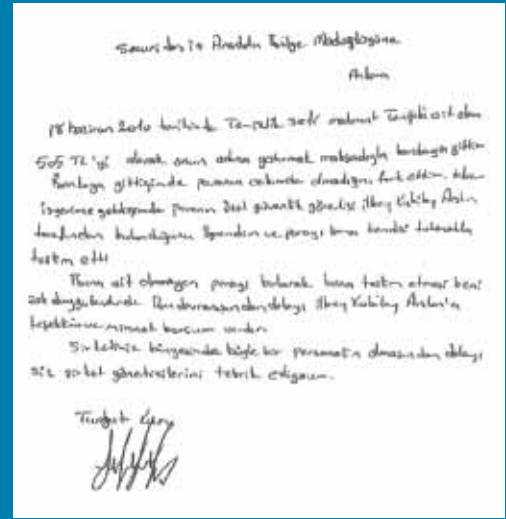 Securitas'ın Anadolu Bölge Müdürlüğüne
Ankara
18 Haziran 2010 tarihinde Temizlik şefi ait olan
505 TL'yi alarak onun adına yatırmak maksadıyla bankaya gittim
Bankaya gittiğimde paranın cebimde olmadığını fark ettim.
işyerime geldiğimde paranın özel güvenlik görevlisi İlkay Kubilay Arslan
tarafından bulunduğunu öğrendim ve parayı bana kendisi tutanakla
teslim etti
Buna ait olmayan parayı bularak bana teslim etmesi beni
çok duygulandırdı. Bu davranışından dolayı İlkay Kubilay Arslan'a
teşekkür ve minnet borcum vardır.
Şirketiniz bünyesinde böyle bir personelin olmasından dolayı
siz şirket yöneticilerini tebrik ediyorum.
Turgut